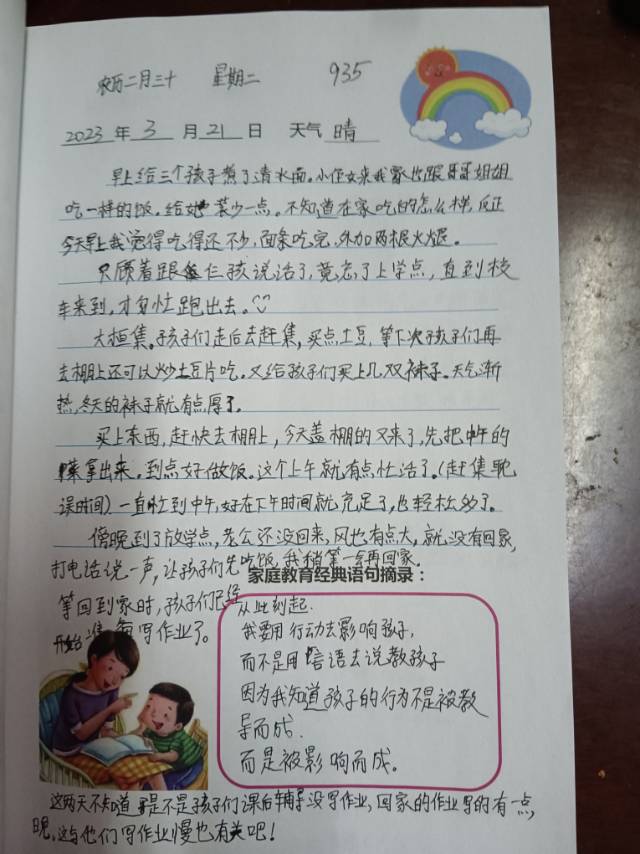 农历二月三十 星期二 935
2023 年 3 月 21 日 天气 晴
早上给三个孩子煮了清水面。小侄女来我家也跟哥哥姐姐
吃一样的饭。给她菜少一点。不知道在家吃的怎么样,反正
今天早上我觉得吃得还不少,面条吃完,外加两根火腿。
只顾着跟仨孩说话了,竟忘了上学点,直到校
车来到,才匆忙跑出去。
大桓集。孩子们走后去赶集,买点土豆,等下次孩子们再
去棚上还可以炒土豆片吃。又给孩子们买上几双袜子。天气渐
热,冬天的袜子就有点厚了。
买上东西,赶快去棚上,今天盖棚的又来了,先把中午的
馍拿出来。到点好做饭。这个上午就有点忙活了。(赶集耽
误时间)一直忙到中午,好在下午时间就充足了,也轻松多了。
傍晚到了放学点,老公还没回来,风也有点大,就没有回家,
打电话说一声,让孩子们先吃饭,我稍等一会再回家。
等回到家时,孩子们已经
开始准备写作业了。
家庭教育经典语句摘录:
从此刻起.
我要用行动去影响孩子,
而不是用语去说教孩子
因为我知道孩子的行为不是被教
导而成.
而是被影响而成。
这两天不知道是不是孩子们课后辅导没写作业,回家的作业写的有一点
晚,这与他们写作业慢也有关吧!